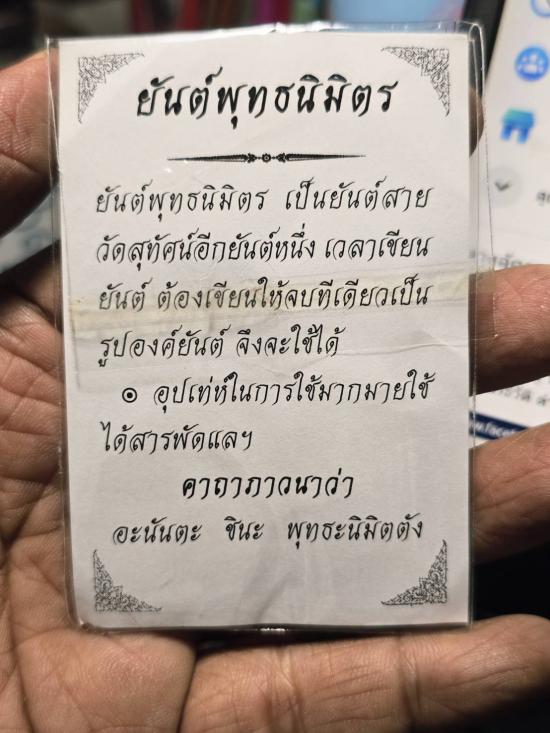 ยันต์พุทธนิมิตร
ยันต์พุทธนิมิตร เป็นยันต์สาย
วัดสุทัศน์อีกยันต์หนึ่ง เวลาเขียน
ยันต์ ต้องเขียนให้จบทีเดียวเป็น
รูปองค์ยันต์ จึงจะใช้ได้
๏ อุปเท่ห์ในการใช้มากมายใช้
ได้สารพัดแลฯ
คาถาภาวนาว่า
อะนันตะ ชินะ พุทธะนิมิตตัง